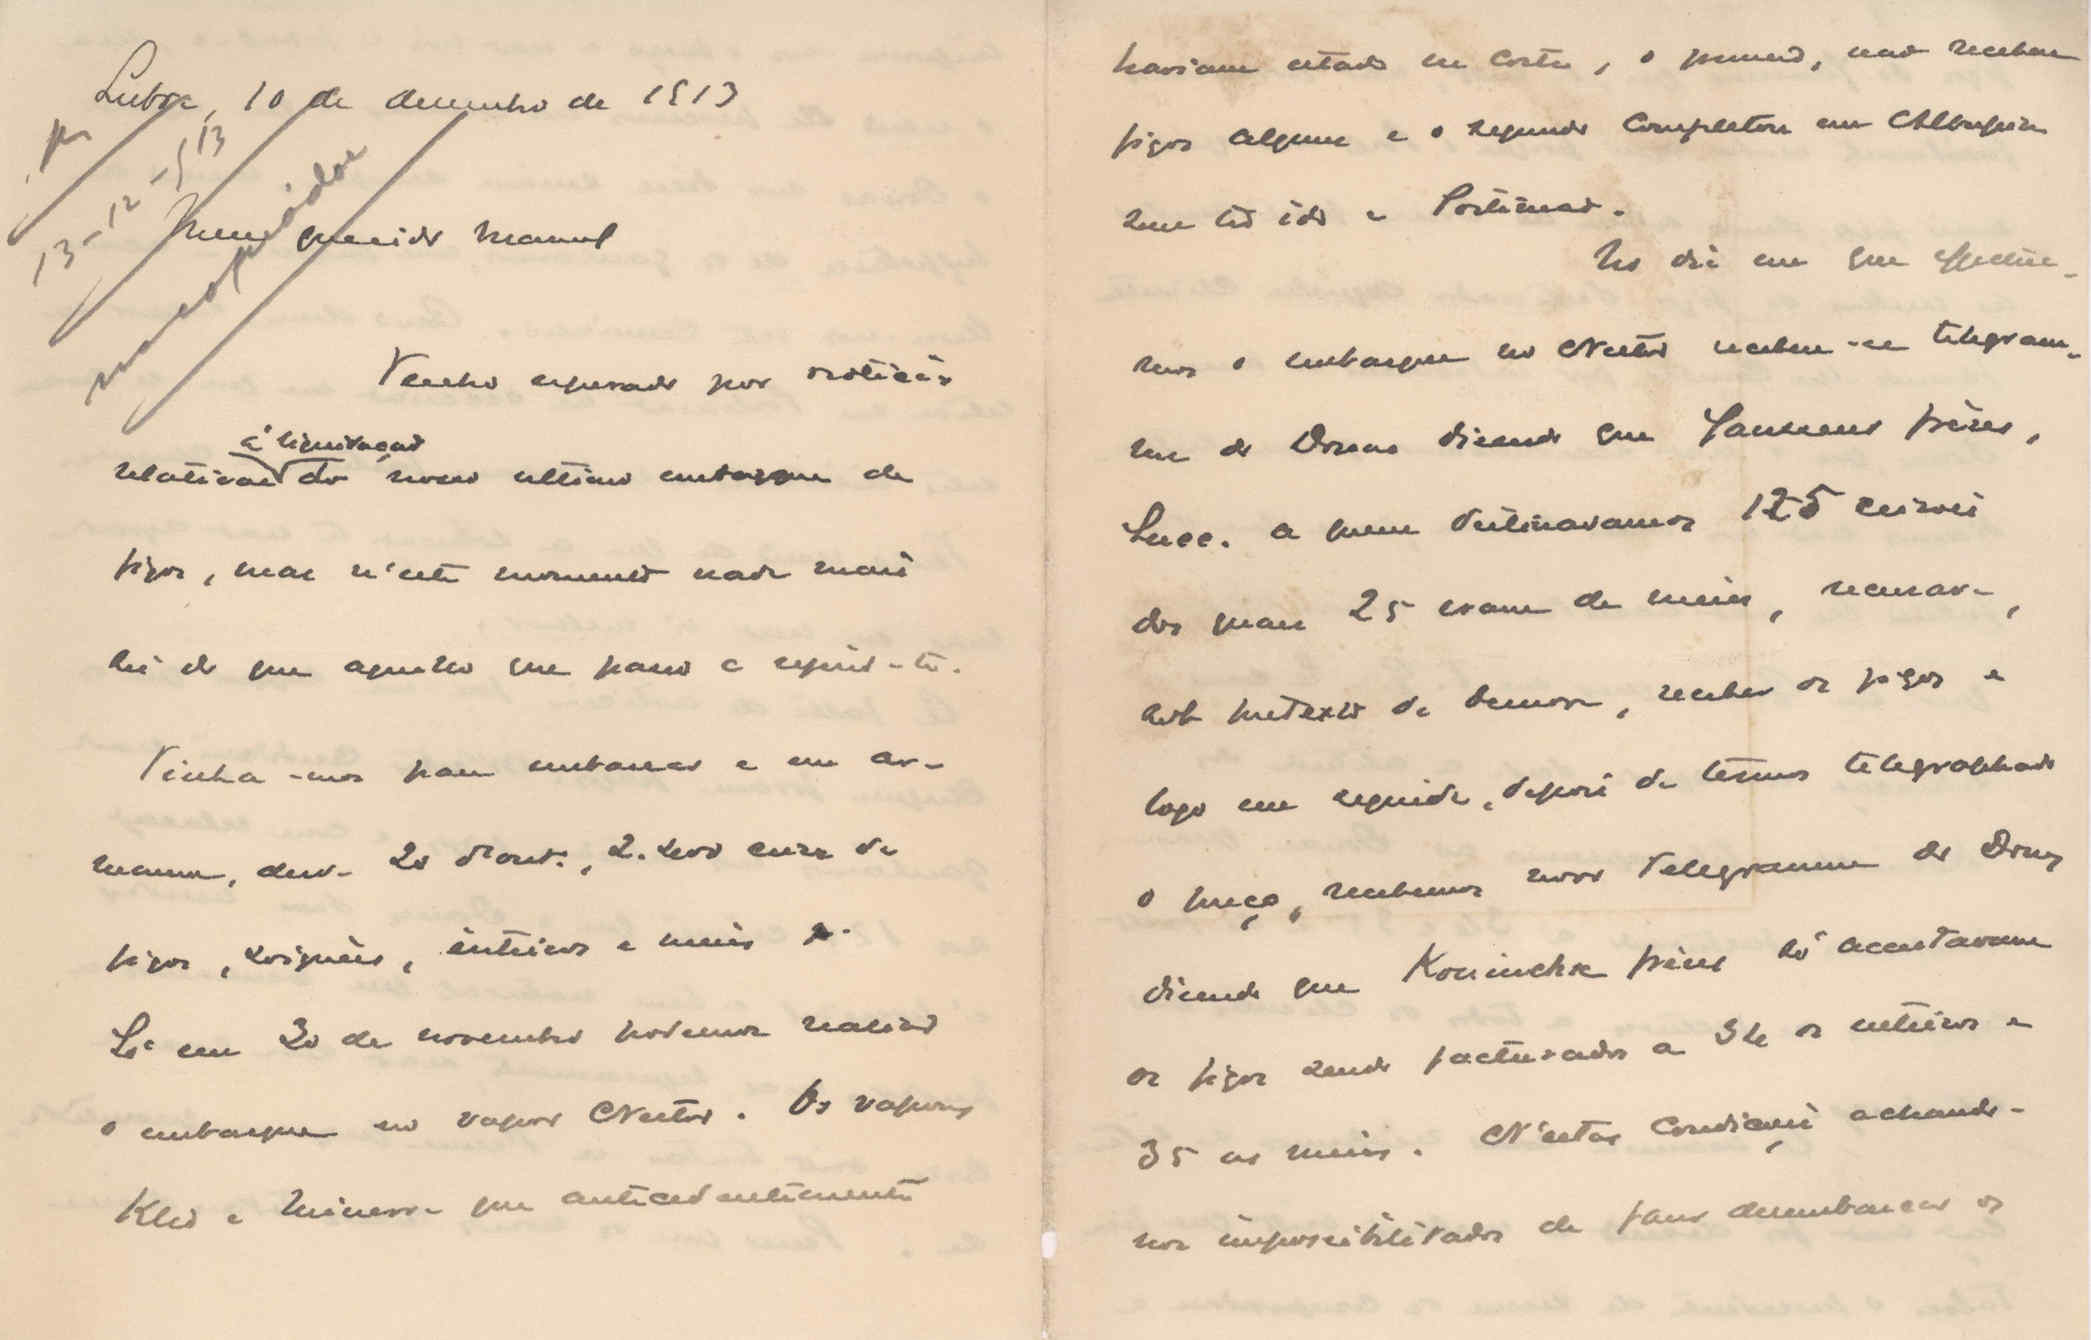 Lisboa, 10 de dezembro de 1913
13-12-913
respondida
Meu querido Manuel
Tenho esperado por noticias
relativas á liquidação do nosso ultimo embarque de
figos, mas n'este momento nada mais
sei do que aquillo que passo a expôr-te.
Tinha-mos para embarcar e em ar-
mazem, desde 20 d'out., 2. ceiras de
figos, soignées, inteiros e meias
Só em 30 de novembro podemos realisar
o embarque no vapor Nestor. Os vapores
Klio e Minerva que antecedentemente
haviam estado na costa, o primeiro, não recebeu
figos alguns e o segundo completou em Albufeira
sem ter ido a Portimão.
No dia em que effectua-
mos o embarque no Nestor recebeu-se telegram-
ma do Dorus dizendo que Janssens frères,
Succ. a quem destinavamos 125 ceiras
das quaes 25 eram de meias, recusava,
sob pretexto de demora, receber os figos e
logo em seguida, depois de termos telegraphado
o preço, recebemos novo telegramma do Dorus
dizendo que Koninckx frères só acceitavam
os figos sendo facturados a 34 os inteiros e
35 as meias. N'estas condições achando-
nos impossibilitados de fazer desembarcar os